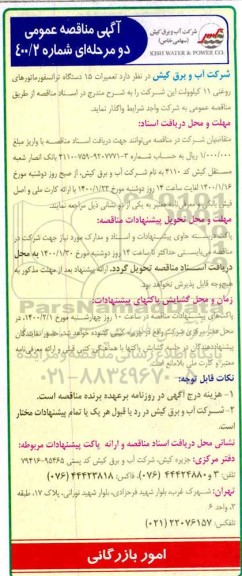 شرکت آب و برق کیش
(سهامی خاص)
KISH WATER & POWER CO.
آگهی مناقصه عمومی
دو مرحله‌ای شماره ۴۰۰/۲
شرکت آب و برق کیش در نظر دارد تعمیرات ۱۵ دستگاه ترانسفورماتورهای
روغنی ۱۱ کیلوولت این شرکت را به شرح مندرج در اسناد مناقصه از طریق
مناقصه عمومی به شرکت واجد شرایط واگذار نماید.
مهلت و محل دریافت اسناد:
متقاضیان شرکت در مناقصه می‌توانند جهت دریافت اسناد مناقصه با واریز مبلغ
۱/۰۰۰/۰۰۰ ریال به حساب شماره ۳-۹۲۰۷۷۷۱-۷۵۹-۴۱۱۰ بانک انصار شعبه
مستقل کیش کد ۴۱۱۰ به نام شرکت آب و برق کیش، از صبح روز دوشنبه مورخ
۱۴۰۰/۱/۱۶ لغایت ساعت ۱۴ روز دوشنبه مورخ ۱۴۰۰/۱/۲۳ با ارائه کارت ملی و اصل
فیش بانکی و معرفی نامه معتبر به یکی از دو نشانی ذیل مراجعه نمایند.
مهلت و محل تحویل پیشنهادات مناقصه:
پاکت‌های بسته حاوی پیشنهادات و اسناد و مدارک مورد نیاز جهت شرکت در
مناقصه می‌بایستی حداکثر تا ساعت ۱۴ روز دوشنبه مورخ ۱۴۰۰/۱/۳۰ به محل
دریافت اسناد مناقصه تحویل گردد. ارائه پیشنهاد بعد از مهلت مذکور به
هیچوجه قابل پذیرش نخواهد بود.
زمان و محل گشایش پاکتهای پیشنهادات:
پاکت‌های پیشنهادات مناقصه در ساعت ۱۰ روز چهارشنبه مورخ ۱۴۰۰/۲/۱، در
محل دفتر مرکزی شرکت واقع در جزیره کیش گشوده خواهد شد. حضور نمایندگان
پیشنهاددهندگان در جلسه گشایش پاکتها با هماهنگی کتبی قبلی و ارائه معرفی نامه
معتبر و کارت ملی بلامانع است.
نکات قابل توجه:
۱- هزینه درج آگهی در روزنامه برعهده برنده مناقصه است.
۲- شرکت آب و برق کیش در رد یا قبول هر یک یا تمام پیشنهادات مختار
است.
نشانی محل دریافت اسناد مناقصه و ارائه پاکت پیشنهادات مربوطه:
دفتر مرکزی: جزیره کیش، شرکت آب و برق کیش کد پستی ۹۵۴۶۵-۷۹۴۱۶
تلفن: ۳ و ۴۴۴۲۴۸۸۰ (۰۷۶) فاکس: ۴۴۴۲۳۸۱۸ (۰۷۶)
تهران: شهرک غرب، بلوار شهید فرحزادی، بلوار شهید نورانی، پلاک ۱۷، طبقه
۳، واحد ۶
تلفکس: ۲۲۰۷۶۱۵۷ (۰۲۱)
امور بازرگانی
ParsNamadData
پایگاه اطلاع رسانی مناقصه و مزایده
۰۲۱-۸۸۳۴۹۶۷۰